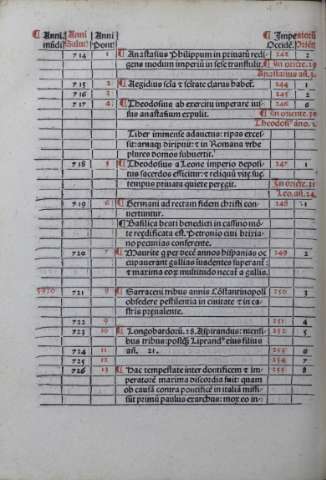 Anni mūdi Anni Salut' Anni Pont' Impatorū Occidē. Oriēt.
714 1 Anastasius Philippum in priuatū redi 242 2
gens modum imperiū in sese transtulit. In oriēte .19
Anastasius añ.3.
715 2 Aegidius scīa & scitate clarus habet. 244 1
716 3 245 2
717 4 Theodosius ab exercitu imperare ius 246 6
sus anastasium expulit. In oriente .20
Theodosi' año.1.
Tiber immense adauctus: ripas exces
sit: arua diripuit: & in Romana vrbe
plures domos subuertit.
718 5 Theodosius a Leone imperio deposi 247 1
tus sacerdos efficitur: & reliquū vite sue In oriēte.
tempus priuata quiete peregit. Leo añ.24.
719 6 Germani ad rectam fidem christi con 248 1
uertuntur.
Basilica beati benedicti in cassino mō
te reedificata est. Petronio ciui brixia
no pecunias conferente.
720 7 Maurite q̄ per decē annos hispanias oc 249 2
cupauerant gallias inuadentes superant'
& maxima eoꝝ multitudo necat' a gallis.
5920 721 8 Sarraceni tribus annis Cōstantinopoli 250 3
obsedere pestilentia in ciuitate & in ca
stris preualente.
722 9 251 4
723 10 Longobardorū.18. Aspirandus: mensi 252 5
bus tribus: postq̄ Liprand' eius filius
añ. 21.
724 11 253 6
725 12 254 7
726 13 Hac tempestate inter pontificem & im 255 8
peratorē maxima discordia fuit: quam
ob causā contra pontificē in italiā mis
sit primū paulus exarchus: mox eo in